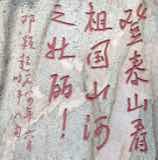 登泰山看
祖国山河
之壮丽！
邓颖超